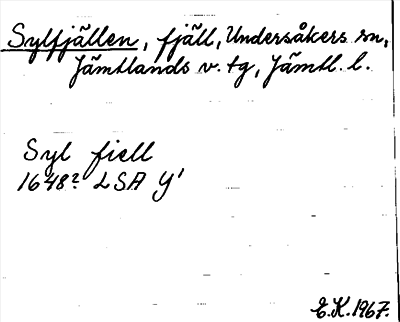 Sylfjällen, fjäll, Undersåkers sn,
Jämtlands v. tg, Jämtl. l.
Syl fiell
1648? LSA Y'
E.K. 1967.